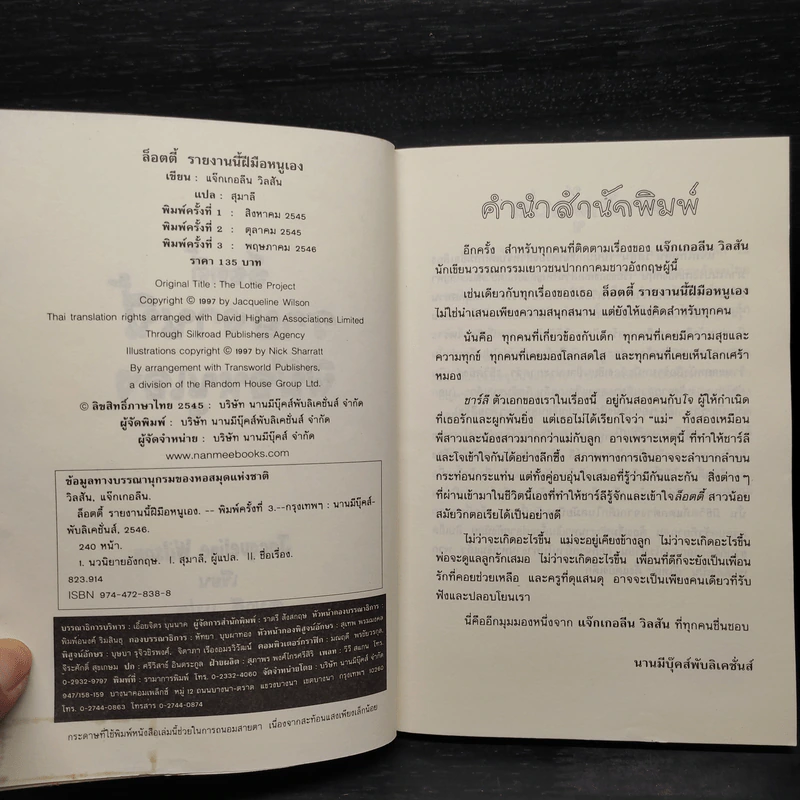 ล็อตตี้ รายงานนี้ฝีมือหนูเอง
เขียน : แจ๊กเกอลีน วิลสัน
แปล : สุมาลี
พิมพ์ครั้งที่ 1 : สิงหาคม 2545
พิมพ์ครั้งที่ 2 : ตุลาคม 2545
พิมพ์ครั้งที่ 3 : พฤษภาคม 2546
ราคา 135 บาท
Original Title : The Lottie Project
Copyright © 1997 by Jacqueline Wilson
Thai translation rights arranged with David Higham Associations Limited
Through Silkroad Publishers Agency
Illustrations copyright © 1997 by Nick Sharratt
By arrangement with Transworld Publishers,
a division of the Random House Group Ltd.
© ลิขสิทธิ์ภาษาไทย 2545 : บริษัท นานมีบุ๊คส์พับลิเคชั่นส์ จำกัด
ผู้จัดพิมพ์ : บริษัท นานมีบุ๊คส์พับลิเคชั่นส์ จำกัด
ผู้จัดจำหน่าย : บริษัท นานมีบุ๊คส์ จำกัด
www.nanmeebooks.com
ข้อมูลทางบรรณานุกรมของหอสมุดแห่งชาติ
วิลสัน, แจ๊กเกอลีน.
ล็อตตี้ รายงานนี้ฝีมือหนูเอง. -- พิมพ์ครั้งที่ 3.--กรุงเทพฯ : นานมีบุ๊คส์-
พับลิเคชั่นส์, 2546.
240 หน้า.
I. นวนิยายอังกฤษ. I. สุมาลี, ผู้แปล. II. ชื่อเรื่อง.
823.914
ISBN 974-472-838-8
บรรณาธิการบริหาร : เอื้อยจิตร บุนนาค ผู้จัดการสำนักพิมพ์ : ราตรี สังสกฤษ หัวหน้ากองบรรณาธิการ :
พิมพ์อนงค์ ริมสินธุ กองบรรณาธิการ : ทัศยา บุบผาทอง หัวหน้ากองพิสูจน์อักษร : สุเทพ
พิสูจน์อักษร : บุษบา จิดาภา เรืองอมรวิวัฒน์ คอมพิวเตอร์กราฟิก : มณฤดี
จิระศักดิ์ สุขเกษม ปก : ศรีวิสาข์ อินตระกูล ฝ่ายผลิต : สุภาพร พงศ์ไกรศรีสิริ เพลท : วีรี สแกน โทร.
0-2932-9797 พิมพ์ที่ : รามาการพิมพ์ โทร. 0-2332-4060 จัดจำหน่ายโดย : บริษัท นานมีบุ๊คส์ จำกัด
947/158-159 บางนาคอมเพล็กซ์ หมู่ 12 ถนนบางนา-ตราด แขวงบางนา เขตบางนา กรุงเทพฯ 10260
โทร. 0-2744-0863 โทรสาร 0-2744-0874
กระดาษที่ใช้พิมพ์หนังสือเล่มนี้ช่วยในการถนอมสายตา เนื่องจากสะท้อนแสงเพียงเล็กน้อย
คำนำสำนักพิมพ์
อีกครั้ง สำหรับทุกคนที่ติดตามเรื่องของ แจ๊กเกอลีน วิลสัน
นักเขียนวรรณกรรมเยาวชนปากกาคมชาวอังกฤษผู้นี้
เช่นเดียวกับทุกเรื่องของเธอ ล็อตตี้ รายงานนี้ฝีมือหนูเอง
ไม่ใช่นำเสนอเพียงความสนุกสนาน แต่ยังให้แง่คิดสำหรับทุกคน
นั่นคือ ทุกคนที่เกี่ยวข้องกับเด็ก ทุกคนที่เคยมีความสุขและ
ความทุกข์ ทุกคนที่เคยมองโลกสดใส และทุกคนที่เคยเห็นโลกเศร้า
หมอง
ชาร์ลี ตัวเอกของเราในเรื่องนี้ อยู่กันสองคนกับโจ ผู้ให้กำเนิด
ที่เธอรักและผูกพันยิ่ง แต่เธอไม่ได้เรียกโจว่า "แม่" ทั้งสองเหมือน
พี่สาวและน้องสาวมากกว่าแม่กับลูก อาจเพราะเหตุนี้ ที่ทำให้ชาร์ลี
และโจเข้าใจกันได้อย่างลึกซึ้ง สภาพทางการเงินอาจจะลำบากลำบน
กระท่อนกระแท่น แต่ทั้งคู่อบอุ่นใจเสมอที่รู้ว่ามีกันและกัน สิ่งต่างๆ
ที่ผ่านเข้ามาในชีวิตนี้เองที่ทำให้ชาร์ลีรู้จักและเข้าใจล็อตตี้ สาวน้อย
สมัยวิกตอเรียได้เป็นอย่างดี
ไม่ว่าจะเกิดอะไรขึ้น แม่จะอยู่เคียงข้างลูก ไม่ว่าจะเกิดอะไรขึ้น
พ่อจะดูแลลูกรักเสมอ ไม่ว่าจะเกิดอะไรขึ้น เพื่อนที่ดีก็จะยังเป็นเพื่อน
รักที่คอยช่วยเหลือ และครูที่ดูแสนดุ อาจจะเป็นเพียงคนเดียวที่รับ
ฟังและปลอบโยนเรา
นี่คืออีกมุมมองหนึ่งจาก แจ๊กเกอลีน วิลสัน ที่ทุกคนชื่นชอบ
นานมีบุ๊คส์พับลิเคชั่นส์